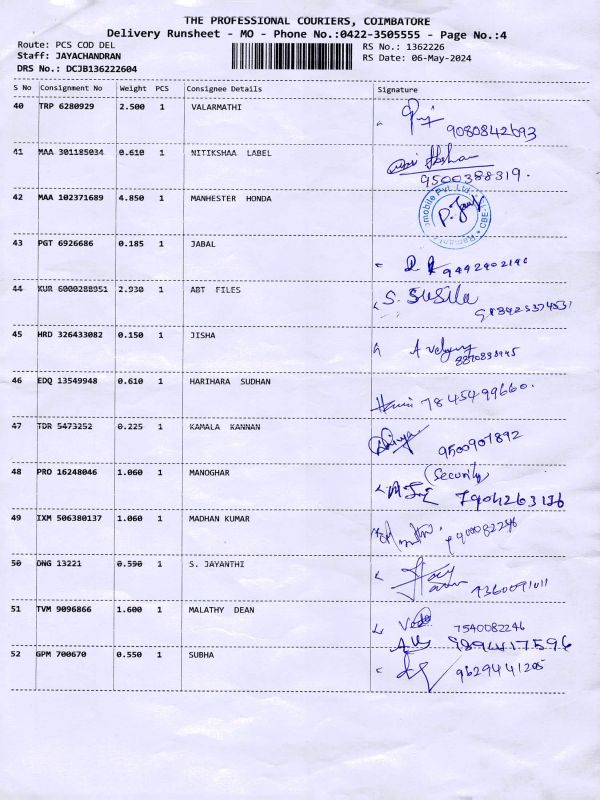 THE PROFESSIONAL COURIERS, COIMBATORE
Delivery Runsheet - MO - Phone No.:0422-3505555 - Page No.:4
Route: PCS COD DEL RS No.: 1362226
Staff: JAYACHANDRAN RS Date: 06-May-2024
DRS No.: DCJB136222604
S No Consignment No Weight PCS Consignee Details Signature
40 TRP 6280929 2.500 1 VALARMATHI
9080842693
41 MAA 301185034 0.610 1 NITIKSHAA LABEL
9500388319.
42 MAA 102371689 4.850 1 MANHESTER HONDA
43 PGT 6926686 0.185 1 JABAL
44 KUR 6000288951 2.930 1 ABT FILES S. Susila
45 HRD 326433082 0.150 1 JISHA
46 EDQ 13549948 0.610 1 HARIHARA SUDHAN
7845499660.
47 TDR 5473252 0.225 1 KAMALA KANNAN
9500907892
48 PRO 16248046 1.060 1 MANOGHAR (Security
7904263176
49 IXM 506380137 1.060 1 MADHAN KUMAR
50 DNG 13221 0.590 1 S. JAYANTHI
9360091011
51 TVM 9096866 1.600 1 MALATHY DEAN
7540082246
9894417596
52 GPM 700670 0.550 1 SUBHA
9629441205